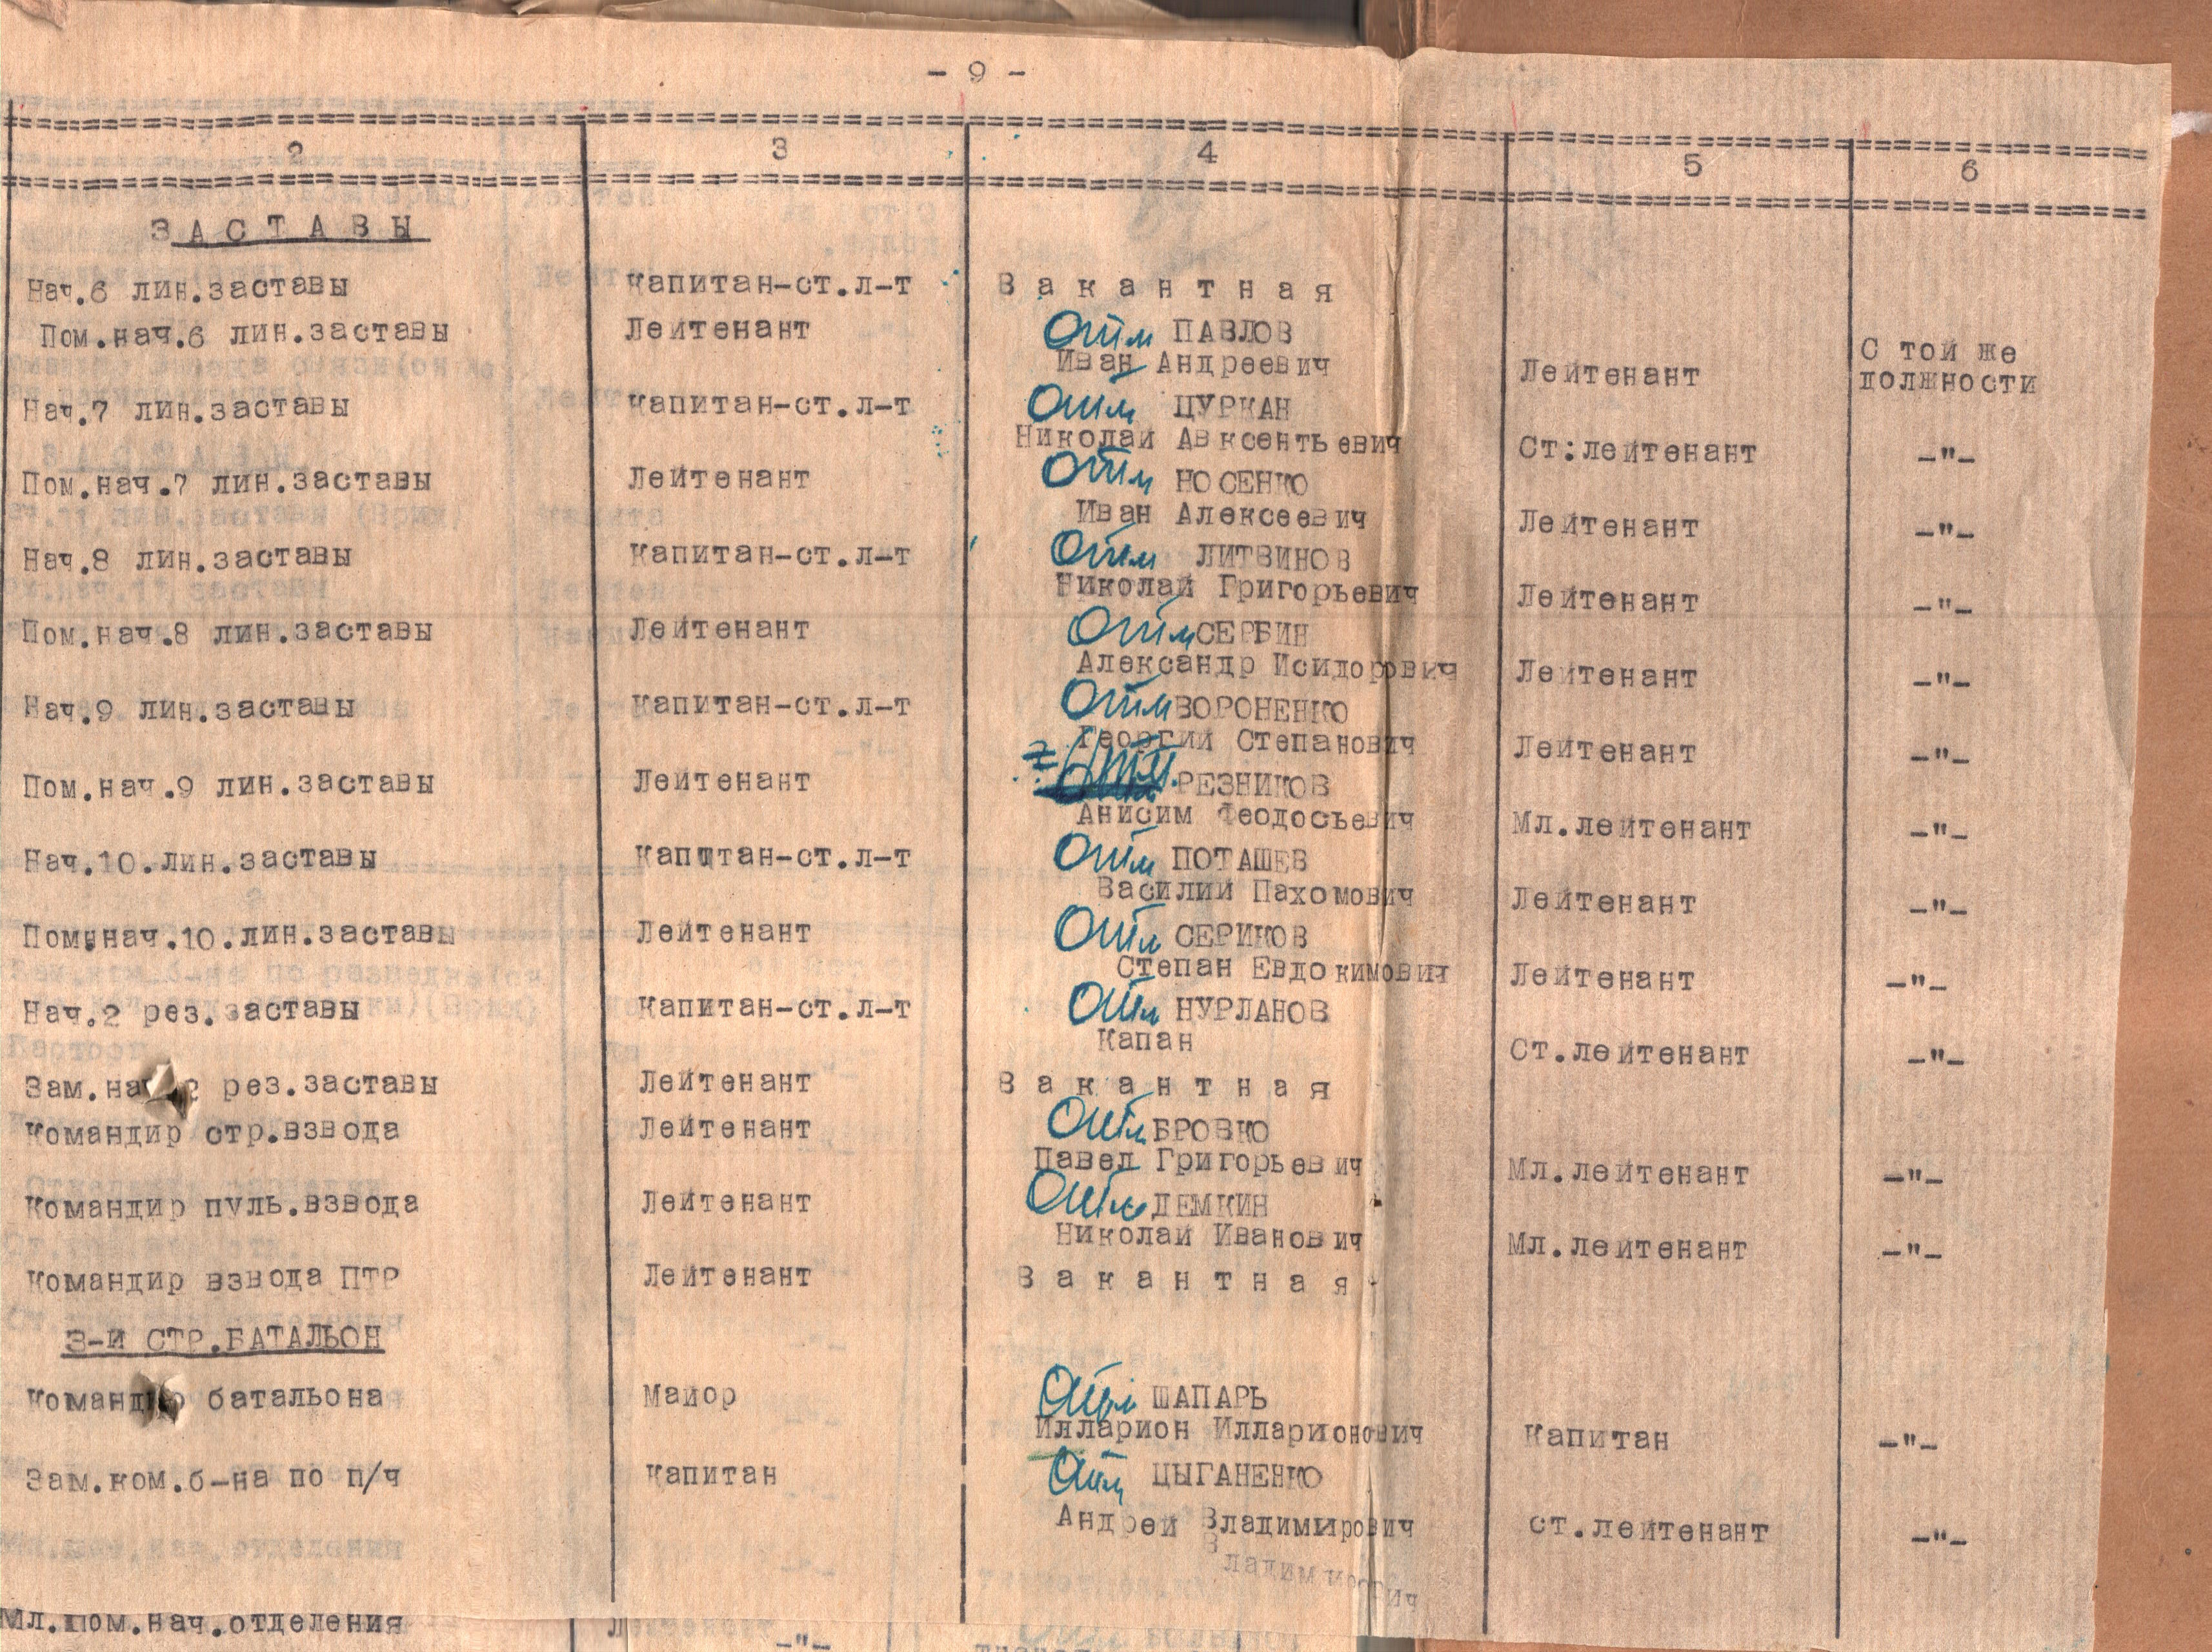 - 9 -
2 3 4 5 6
ЗАСТАВЫ
Нач.6 лин.заставы Капитан-ст.л-т Вакантная
Пом.нач.6 лин.заставы Лейтенант Отм ПАВЛОВ
Иван Андреевич Лейтенант С той же
должности
Нач.7 лин.заставы Капитан-ст.л-т Отм ЦУРКАН
Николай Авксентьевич Ст:лейтенант -"-
Пом.нач.7 лин.заставы Лейтенант Отм НОСЕНКО
Иван Алексеевич Лейтенант -"-
Нач.8 лин.заставы Капитан-ст.л-т Отм ЛИТВИНОВ
Николай Григорьевич Лейтенант -"-
Пом.нач.8 лин.заставы Лейтенант Отм СЕРБИН
Александр Исидорович Лейтенант -"-
Нач.9 лин.заставы Капитан-ст.л-т Отм ВОРОНЕНКО
Георгий Степанович Лейтенант -"-
Пом.нач.9 лин.заставы Лейтенант РЕЗНИКОВ
Анисим Феодосьевич Мл.лейтенант -"-
Нач.10.лин.заставы Капитан-ст.л-т Отм ПОТАШЕВ
Василий Пахомович Лейтенант -"-
Пом.нач.10.лин.заставы Лейтенант Отм СЕРИКОВ
Степан Евдокимович Лейтенант -"-
Нач.2 рез.заставы Капитан-ст.л-т Отм НУРЛАНОВ
Капан Ст.лейтенант -"-
Зам.нач.2 рез.заставы Лейтенант Вакантная
Командир стр.взвода Лейтенант Отм БРОВКО
Павел Григорьевич Мл.лейтенант -"-
Командир пуль.взвода Лейтенант Отм ДЕМКИН
Николай Иванович Мл.лейтенант -"-
Командир взвода ПТР Лейтенант Вакантная
3-й СТР.БАТАЛЬОН
Командир батальона Майор Отм ШАПАРЬ
Илларион Илларионович Капитан -"-
Зам.ком.б-на по п/ч Капитан Отм ЦЫГАНЕНКО
Андрей Владимирович ст.лейтенант -"-
Владимирович
Мл.пом.нач.отделения -"-